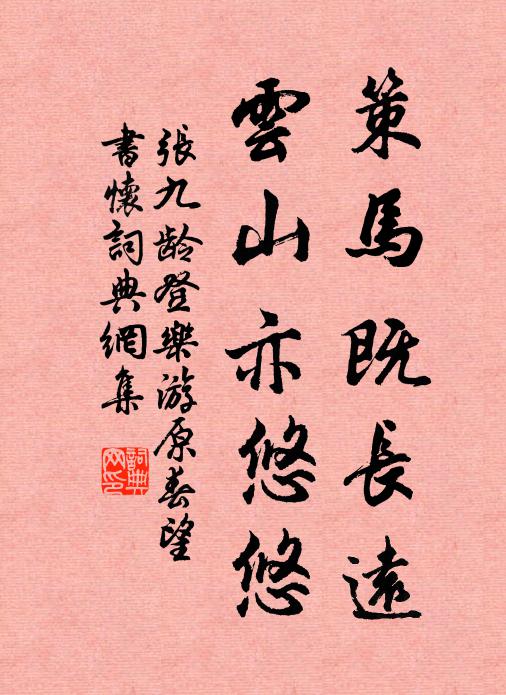 策馬既長遠
雲山亦悠悠
張九龄登樂游原春望
書懷詞典網集
詞典网印